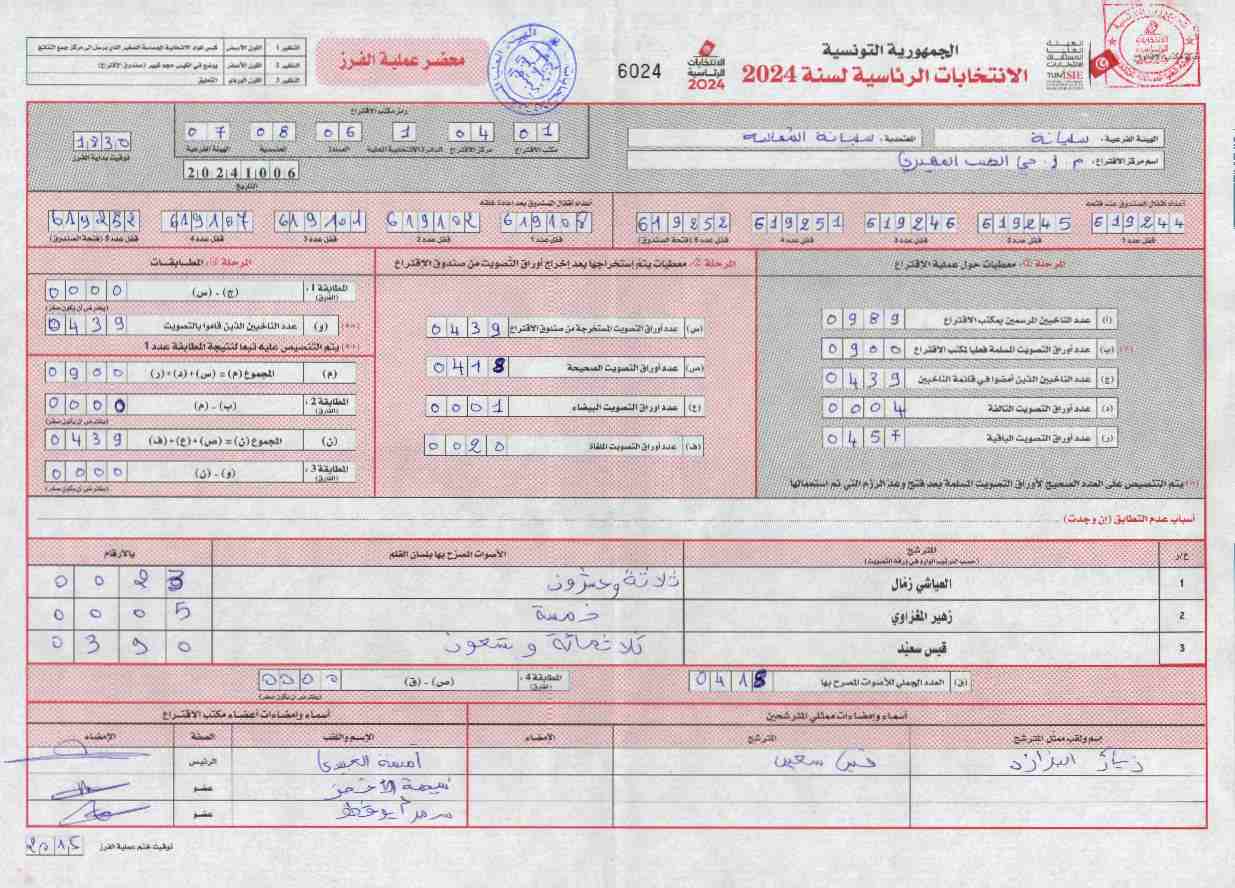 الجمهورية التونسية
الانتخابات الرئاسية لسنة 2024
الهيئة
العليا
المستقلة
للانتخابات
TUNISIE
الانتخابات
الرئاسية
2024
6024
محضر عملية الفرز
النظير 1 اللون الأبيض
النظير 2 اللون الأصفر يوضع في الكيس حجم كبير (صندوق الاقتراع)
النظير 3 اللون الوردي التعليق
الهيئة الفرعية: سليانة المعتمدية: سليانة الشمالية
اسم مركز الاقتراع: حي الطيب المهيري
رمز مكتب الاقتراع
01 04 1 06 08 07
مكتب الاقتراع مركز الاقتراع الدائرة الانتخابية المحلية العمادة المعتمدية الهيئة الفرعية
1830
توقيت بداية الفرز
20241006
التاريخ
أعداد أقفال الصندوق عند فتحه
619244 619245 619246 619251 619252
قفل عدد 1 قفل عدد 2 قفل عدد 3 قفل عدد 4 قفل عدد 5 (فتحة الصندوق)
أعداد أقفال الصندوق بعد إعادة غلقه
619108 619102 619101 619107 619252
قفل عدد 1 قفل عدد 2 قفل عدد 3 قفل عدد 4 قفل عدد 5 (فتحة الصندوق)
المرحلة 1: معطيات حول عملية الاقتراع
(أ) عدد الناخبين المرسمين بمكتب الاقتراع 0989
(*) (ب) عدد أوراق التصويت المسلمة فعليا لمكتب الاقتراع 0900
(ج) عدد الناخبين الذين أمضوا في قائمة الناخبين 0439
(د) عدد أوراق التصويت التالفة 0004
(ر) عدد أوراق التصويت الباقية 0457
(*) يتم التنصيص على العدد الصحيح لأوراق التصويت المسلمة بعد فتح وعد الرزم التي تم استعمالها
المرحلة 2: معطيات يتم إستخراجها بعد إخراج أوراق التصويت من صندوق الاقتراع
(س) عدد أوراق التصويت المستخرجة من صندوق الاقتراع 0439
(ص) عدد أوراق التصويت الصحيحة 0418
(ع) عدد أوراق التصويت البيضاء 0001
(ف) عدد أوراق التصويت الملغاة 0020
المرحلة 3: المطابقات
المطابقة 1: (الفرق) (ج) - (س) 0000
(يفترض أن يكون صفر)
(**) (و) عدد الناخبين الذين قاموا بالتصويت 0439
(**) يتم التنصيص عليه تبعا لنتيجة المطابقة عدد 1
(م) المجموع (م) = (س)+(د)+(ر) 0900
المطابقة 2: (الفرق) (ب) - (م) 0000
(يفترض أن يكون صفر)
(ن) المجموع (ن) = (ص)+(ع)+(ف) 0439
المطابقة 3: (الفرق) (و) - (ن) 0000
(يفترض أن يكون صفر)
أسباب عدم التطابق (إن وجدت)
ع/ر المترشح الأصوات المصرح بها بلسان القلم بالأرقام
(حسب الترتيب الوارد في ورقة التصويت)
1 العياشي زمال ثلاثة وعشرون 0023
2 زهير المغزاوي خمسة 0005
3 قيس سعيّد ثلاثمائة و تسعون 0390
(ق) العدد الجملي للأصوات المصرح بها 0418
المطابقة 4: (الفرق) (ص) - (ق) 0000
(يفترض أن يكون صفر)
أسماء وإمضاءات ممثلي المترشحين
إسم ولقب ممثل المترشح المترشح الامضاء
قيس سعيد
أسماء وإمضاءات أعضاء مكتب الاقتراع
الإسم واللقب الصفة الإمضاء
الرئيس
عضو
عضو
توقيت ختم عملية الفرز 2015